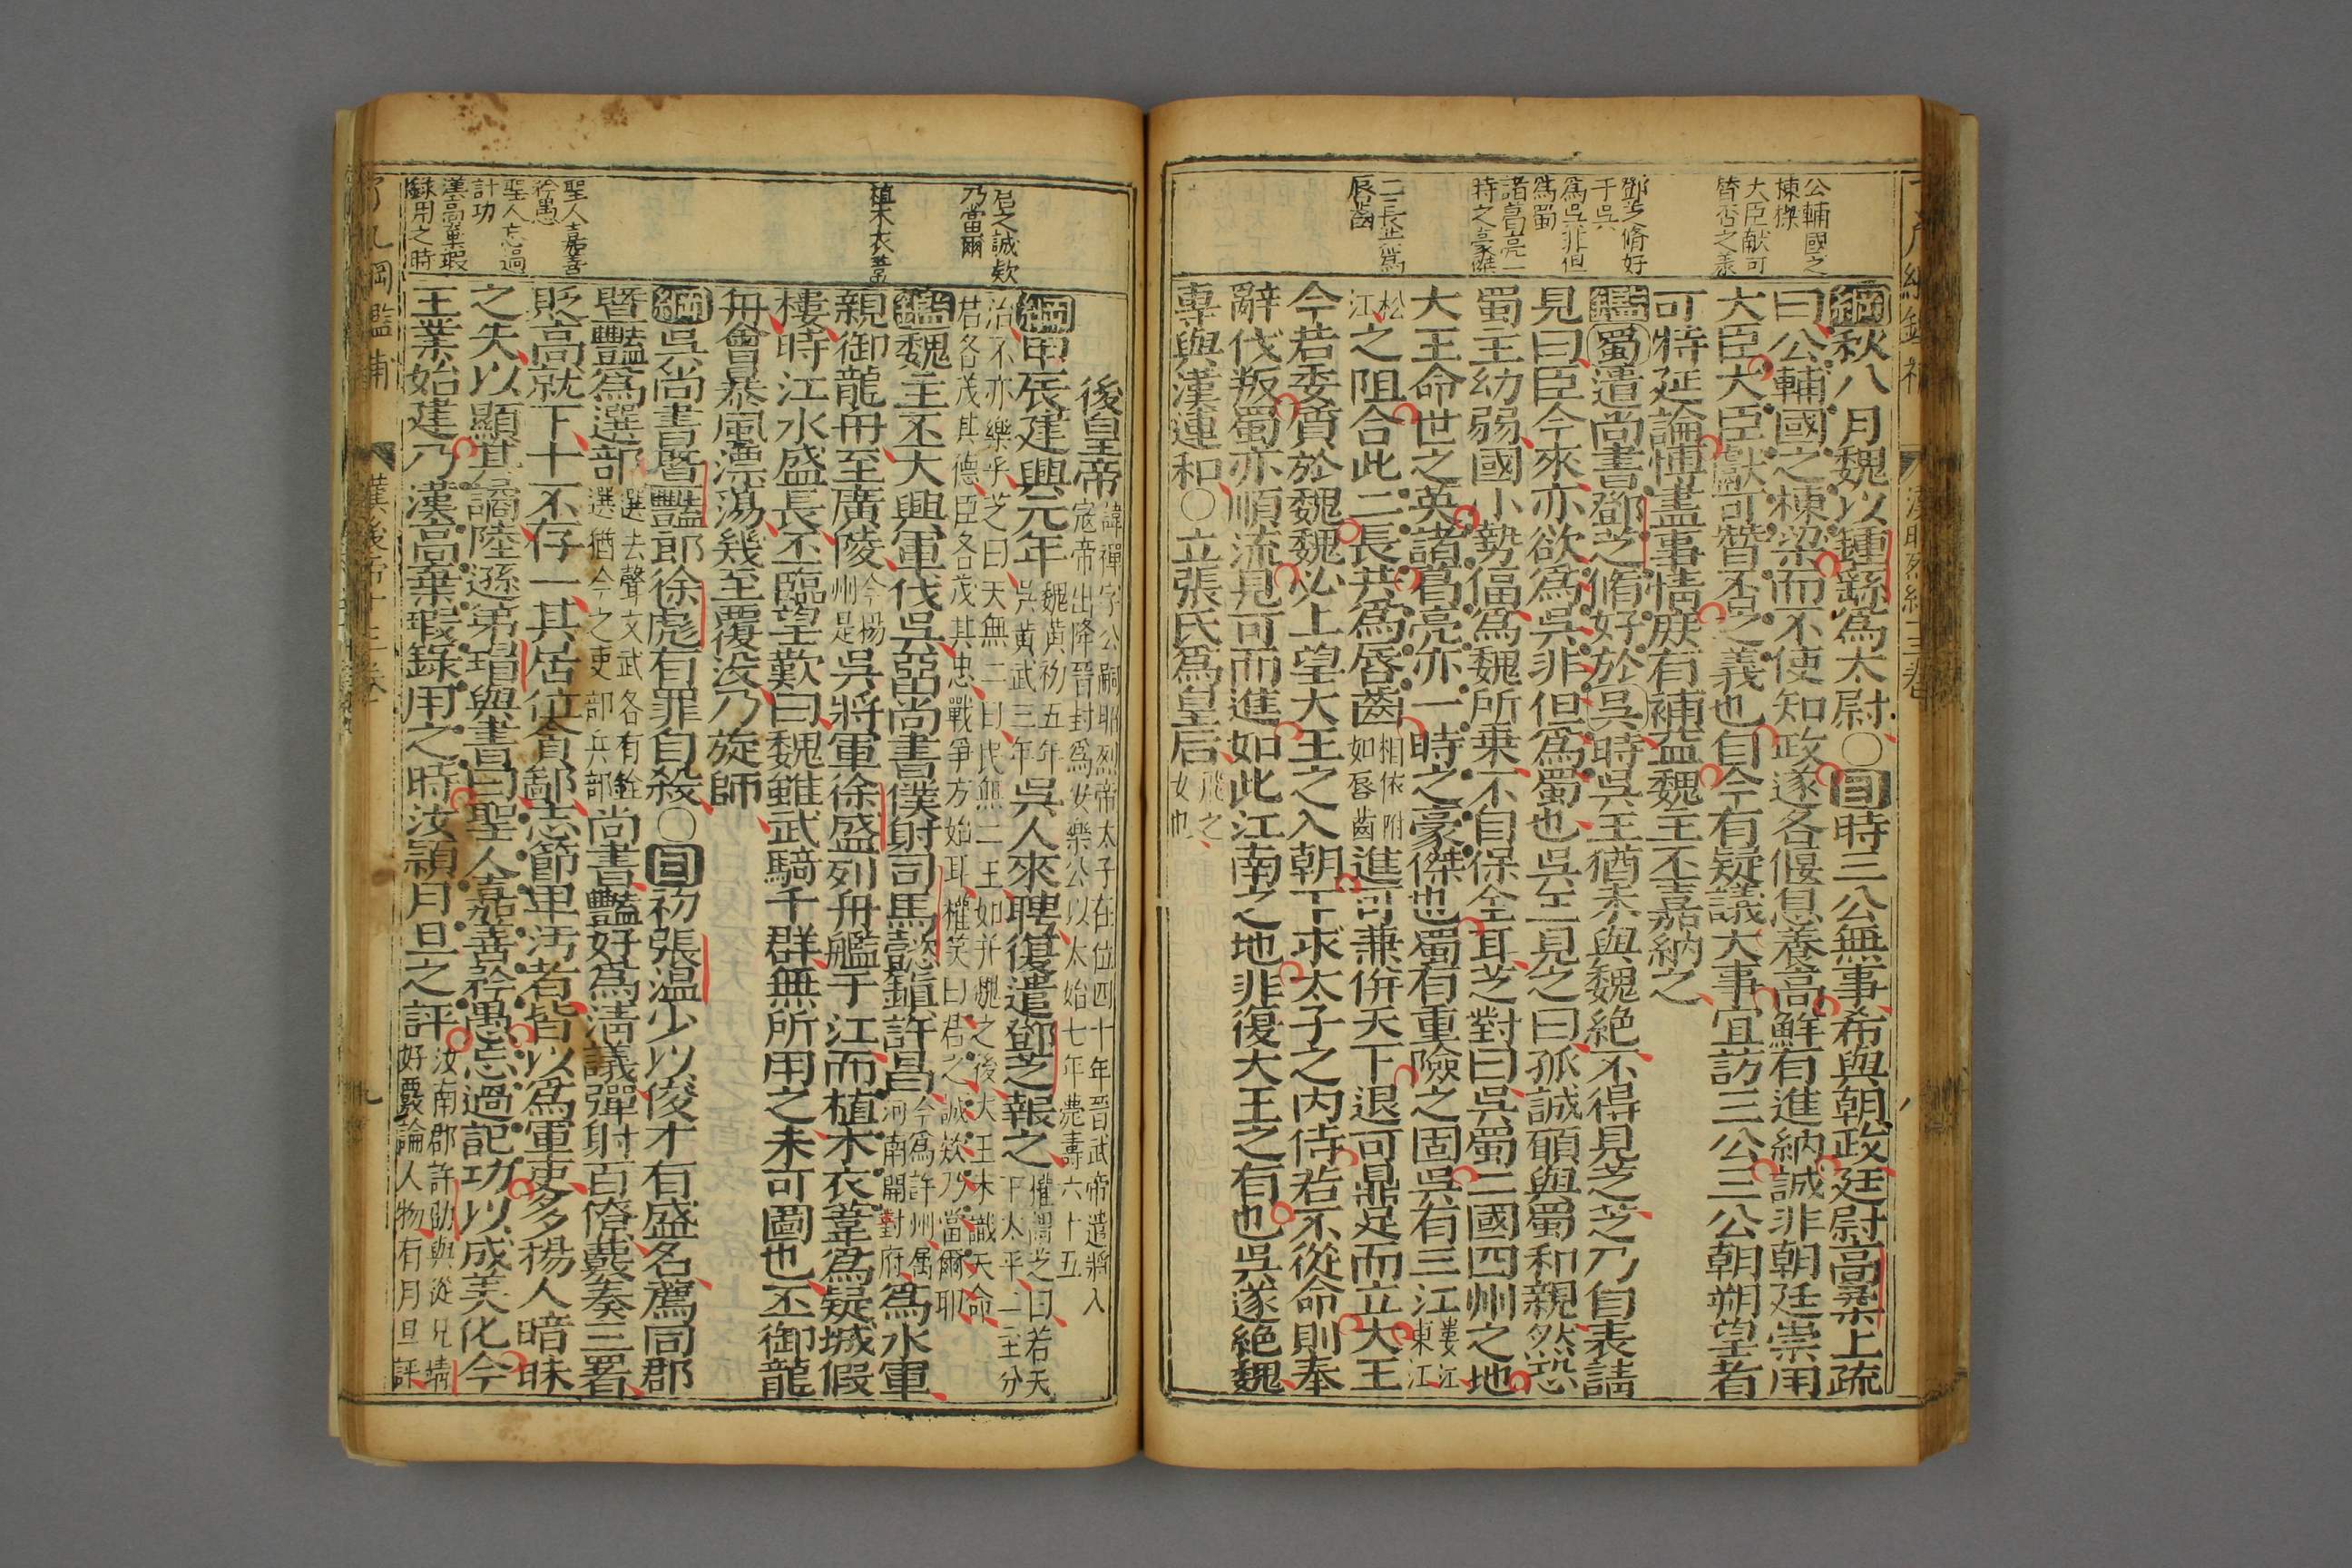 公輔國之
棟樑
大臣献可
替否之義
鄧芝脩好
于吳
為吳非但
為蜀
諸葛亮一
時之豪傑
二長共為
唇齒
綱秋八月魏以鍾繇為太尉○目時三公無事希與朝政廷尉高柔上疏
曰公輔國之棟梁而不使知政遂各偃息養高鮮有進納誠非朝廷崇用
大臣大臣獻可替否之義也自今有疑議大事宜訪三公三公朝朔望者
可特延論博盡事情庶有補益魏主丕嘉納之
鑑蜀遣尚書鄧芝脩好於吳時吳王猶未與魏絶不得見芝芝乃自表請
見曰臣今來亦欲為吳非但為蜀也吳王見之曰孤誠願與蜀和親然恐
蜀主幼弱國小勢偪為魏所乗不自保全耳芝對曰吳蜀二國四州之地
大王命世之英諸葛亮亦一時之豪傑也蜀有重險之固吳有三江婁江
東江
松
江之阻合此二長共為唇齒相依附
如唇齒進可兼併天下退可鼎足而立大王
今若委質於魏魏必上望大王之入朝下求太子之内侍若不從命則奉
辭伐叛蜀亦順流見可而進如此江南之地非復大王之有也吳遂絶魏
專與漢連和○立張氏為皇后飛之
女也
君之誠欸
乃當爾
植木衣葦
聖人嘉善
矜愚
聖人忘過
計功
漢高棄瑕
録用之時
後皇帝諱禪字公嗣昭烈帝太子在位四十年晋武帝遣將入
寇帝出降晋封為安樂公以太始七年薨壽六十五
綱甲辰建興元年魏黄初五年
吳黄武三年吳人來聘復遣鄧芝報之權謂芝曰若天
下太平二主分
治不亦樂乎芝曰天無二日民無二王如并魏之後大王未識天命
君各茂其德臣各茂其忠戰爭方始耳權笑曰君之誠欸乃當爾耶
鑑魏主丕大興軍伐吳亞尚書僕射司馬懿鎮許昌今為許州属
河南開封府為水軍
親御龍舟至廣陵今楊
州是吳將軍徐盛列舟艦于江而植木衣葦為疑城假
樓時江水盛長丕臨望歎曰魏雖武騎千群無所用之未可圖也丕御龍
舟會暴風漂蕩幾至覆没乃旋師
綱吳尚書曁豔郎徐彪有罪自殺○目初張温少以俊才有盛名薦同郡
曁豔為選部選去聲文武各有銓
選猶今之吏部兵部尚書豔好為清議彈射百僚覈奏三署
貶高就下十不存一其居位貪鄙志節卑汚者皆以為軍吏多揚人暗昧
之失以顯其謫陸遜弟瑁與書曰聖人嘉善矜愚忘過記功以成美化今
王業始建乃漢高棄瑕録用之時汝潁月旦之評汝南郡許劭與從兄靖
好覈論人物有月旦評
漢後帝十三卷
九